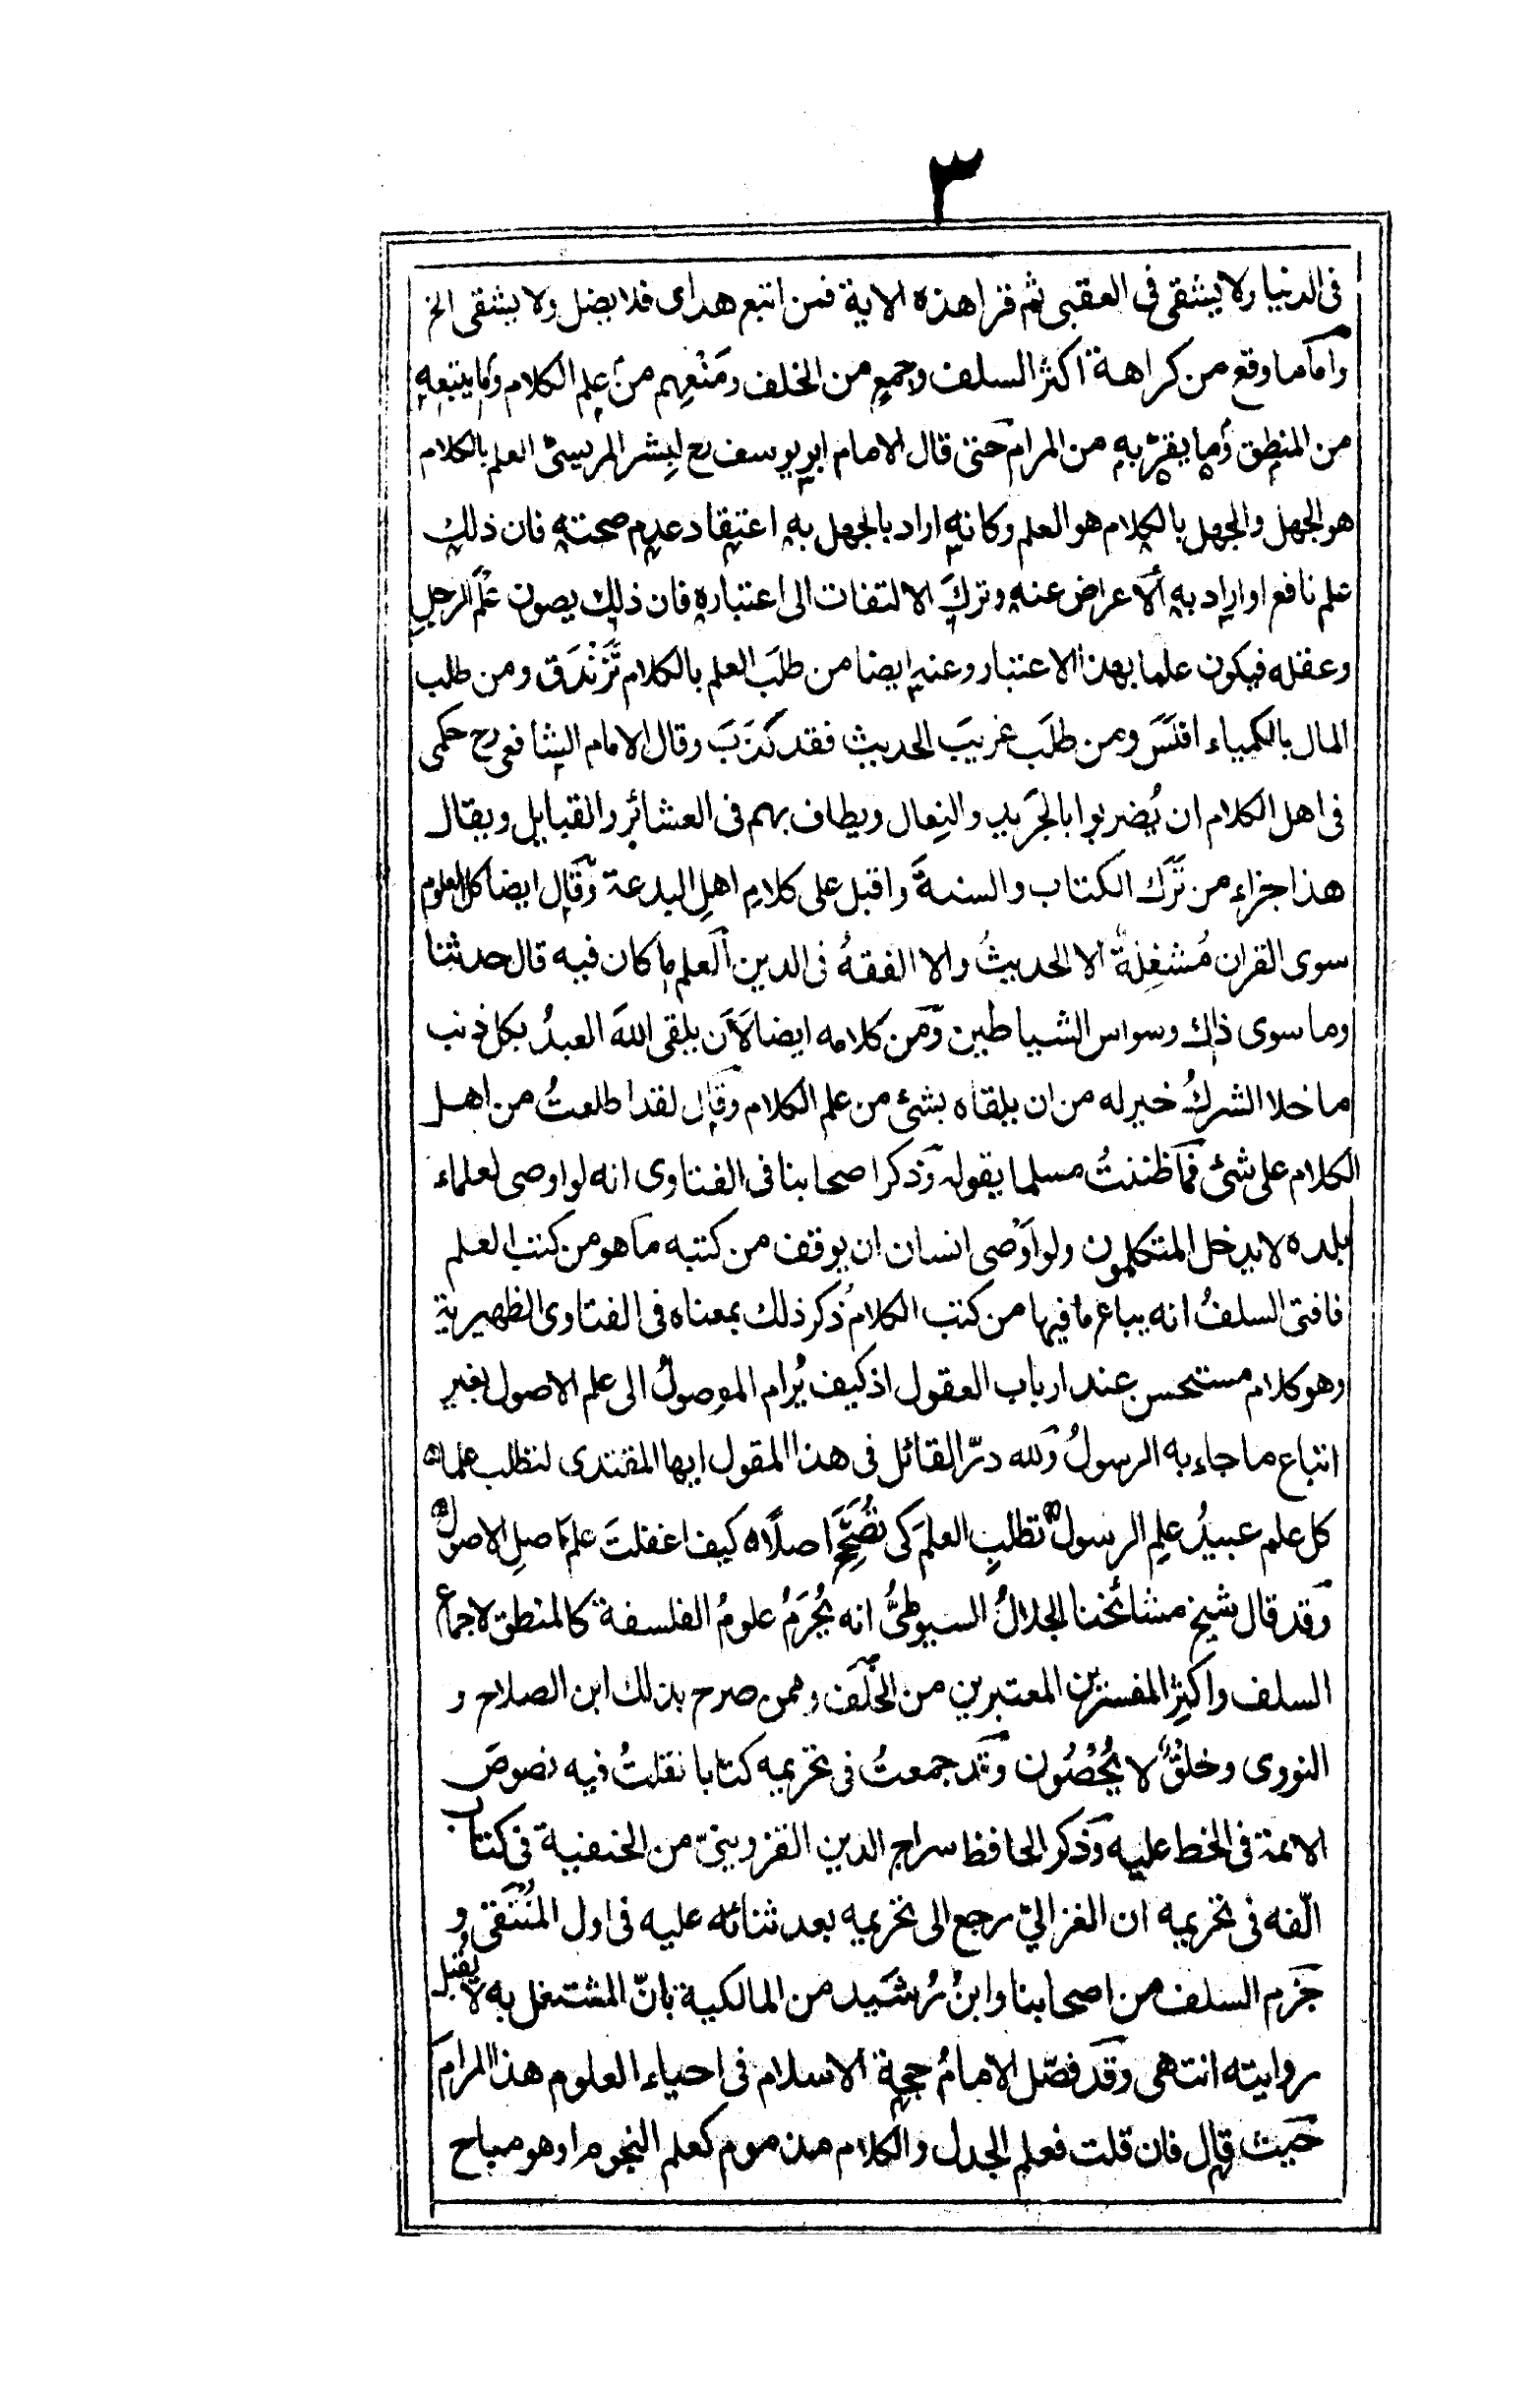 ٣
فى الدنيا ولا يشقى فى العقبى ثم قرا هذه الاية فمن اتبع هداى فلا يضل ولا يشقى الخ
وَاما ما وقع من كراهة اكثر السلف وجمعٍ من الخلف ومَنْعِهم من علم الكلام وما يتبعه
من المنطق وما يقربه من المرام حتى قال الامام ابو يوسف رح لبشر المريسىّ العلم بالكلام
هو الجهل والجهل بالكلام هو العلم وكانه اراد بالجهل به اعتقاد عدم صحته فان ذلك
علم نافع او اراد به الاعراض عنه وتركَ الالتفات الى اعتباره فان ذلك يصون علم الرجل
وعقله فيكون علما بهذا الاعتبار وعنه ايضا من طلبَ العلم بالكلام تَزَنْدَقَ ومن طلب
المال بالكمياء افلَسَ ومن طلَب غريبَ الحديث فقد كذَبَ وقال الامام الشافعى رح حكمى
فى اهل الكلام ان يُضربوا بالجَريد والنِعال ويطاف بهم فى العشائر والقبايل ويقال
هذا جزاء من تَرَك الكتاب والسنةَ واقبل على كلامِ اهلِ البدعة وَقال ايضا كل العلوم
سوى القران مُشغِلةٌ الا الحديثُ والا الفقهُ فى الدين العلم ما كان فيه قال حدثنا
وما سوى ذاك وسواس الشياطين وَمن كلامه ايضا لَأَن يلقى اللهَ العبدُ بكل ذنب
ما خلا الشركُ خير له من ان يلقاه بشئ من علم الكلام وَقال لقد اطلعتُ من اهل
الكلام على شئ فما ظننتُ مسلما يقوله وَذكر اصحابنا فى الفتاوى انه لو اوصى لعلماء
بلده لا يدخل المتكلمون ولو اَوْصى انسان ان يوقف من كتبه ما هو من كتب العلم
فافتى السلفُ انه يباع ما فيها من كتب الكلام ذكر ذلك بمعناه فى الفتاوى الظهيرية
وهو كلام مستحسن عند ارباب العقول اذ كيف يُرام الموصولُ الى علم الاصول بغير
اتباع ما جاء به الرسولُ وَلله درّ القائل فى هذا المقول ايها المقتدى لتطلب علما ۞
كل علم عبيدُ علمِ الرسول ۞ تطلب العلمَ كى تُصَحِّحَ اصلًا ۞ كيف اغفلتَ علمَ اصلِ الاصول ۞
وَقد قال شيخ مشائخنا الجلالُ السيوطىُّ انه يُحْرَمُ علومُ الفلسفة كالمنطق لاجماع
السلف واكثرِ المفسرين المعتبرين من الخَلَف وممن صرح بذلك ابن الصلاح و
النووى وخلقٌ لا يُحْصَون وَقد جمعتُ فى تحريمه كتابا نقلتُ فيه نصوصَ
الائمة فى الحط عليه وَذكر الحافظ سراج الدين القزوينىّ من الحنفية فى كتاب
الّفه فى تحريمه ان الغزالىّ رجع الى تحريمه بعد ثنائه عليه فى اول المُنتقى و
جَزم السلف من اصحابنا وابنُ رُشَيد من المالكية بانّ المشتغل به لا يُقْبَل
روايته انتهى وَقد فصّل الامامُ حجة الاسلام فى احياء العلوم هذا المرام
حَيث قال فان قلت فعلم الجدل والكلام مذموم كعلم النجوم او هو مباح